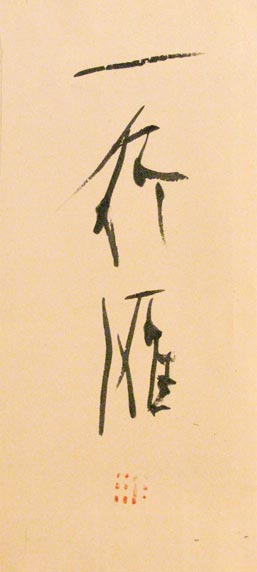 一行雁